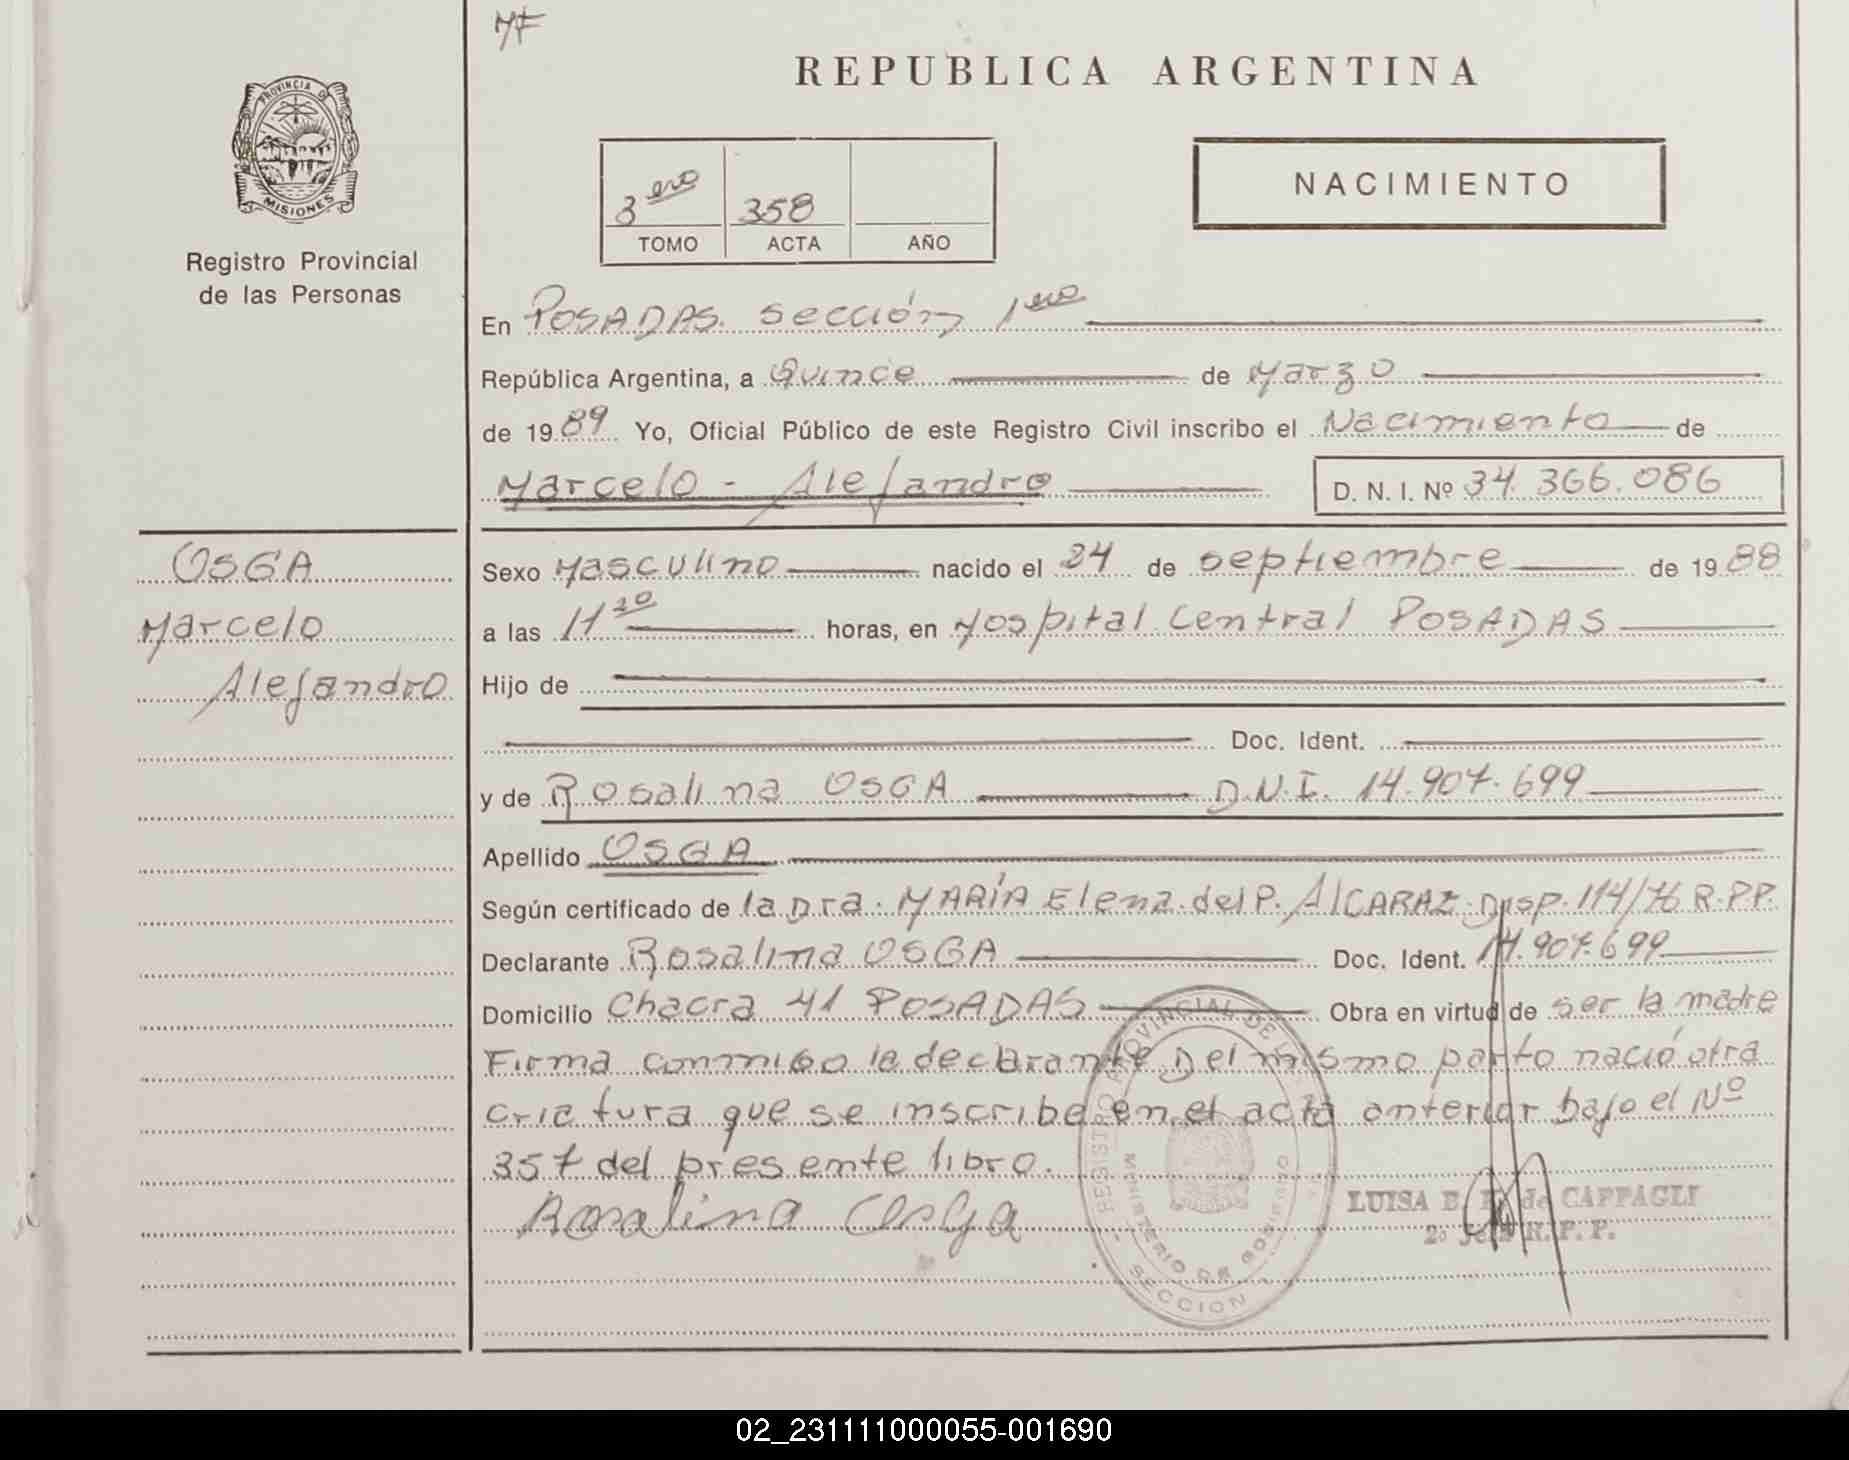 MF
REPUBLICA ARGENTINA
PROVINCIA DE
MISIONES
Registro Provincial
de las Personas
3ero 358
TOMO ACTA AÑO
NACIMIENTO
En POSADAS. sección 1era
República Argentina, a Quince de Marzo
de 1989 Yo, Oficial Público de este Registro Civil inscribo el Nacimiento de
Marcelo - Alejandro D. N. I. Nº 34.366.086
OSGA
Marcelo
Alejandro
Sexo Masculino nacido el 24 de septiembre de 1988
a las 11 30 horas, en Hospital Central POSADAS
Hijo de
Doc. Ident.
y de Rosalina OSGA D.N.I. 14.907.699
Apellido OSGA
Según certificado de la Dra. MARÍA Elena del P. AlCARAZ Disp. 114/76 R.P.P.
Declarante Rosalina OSGA Doc. Ident. 14.907.699
Domicilio Chacra 41 POSADAS Obra en virtud de ser la madre
Firma conmigo la declarante. Del mismo parto nació otra
criatura que se inscribe en el acta anterior bajo el Nº
357 del presente libro.
Rosalina Osga
REGISTRO PROVINCIAL DE
MINISTERIO DE GOBIERNO
SECCION
LUISA E. de CAPPAGLI
2º Jefe R.P.P.
02_231111000055-001690